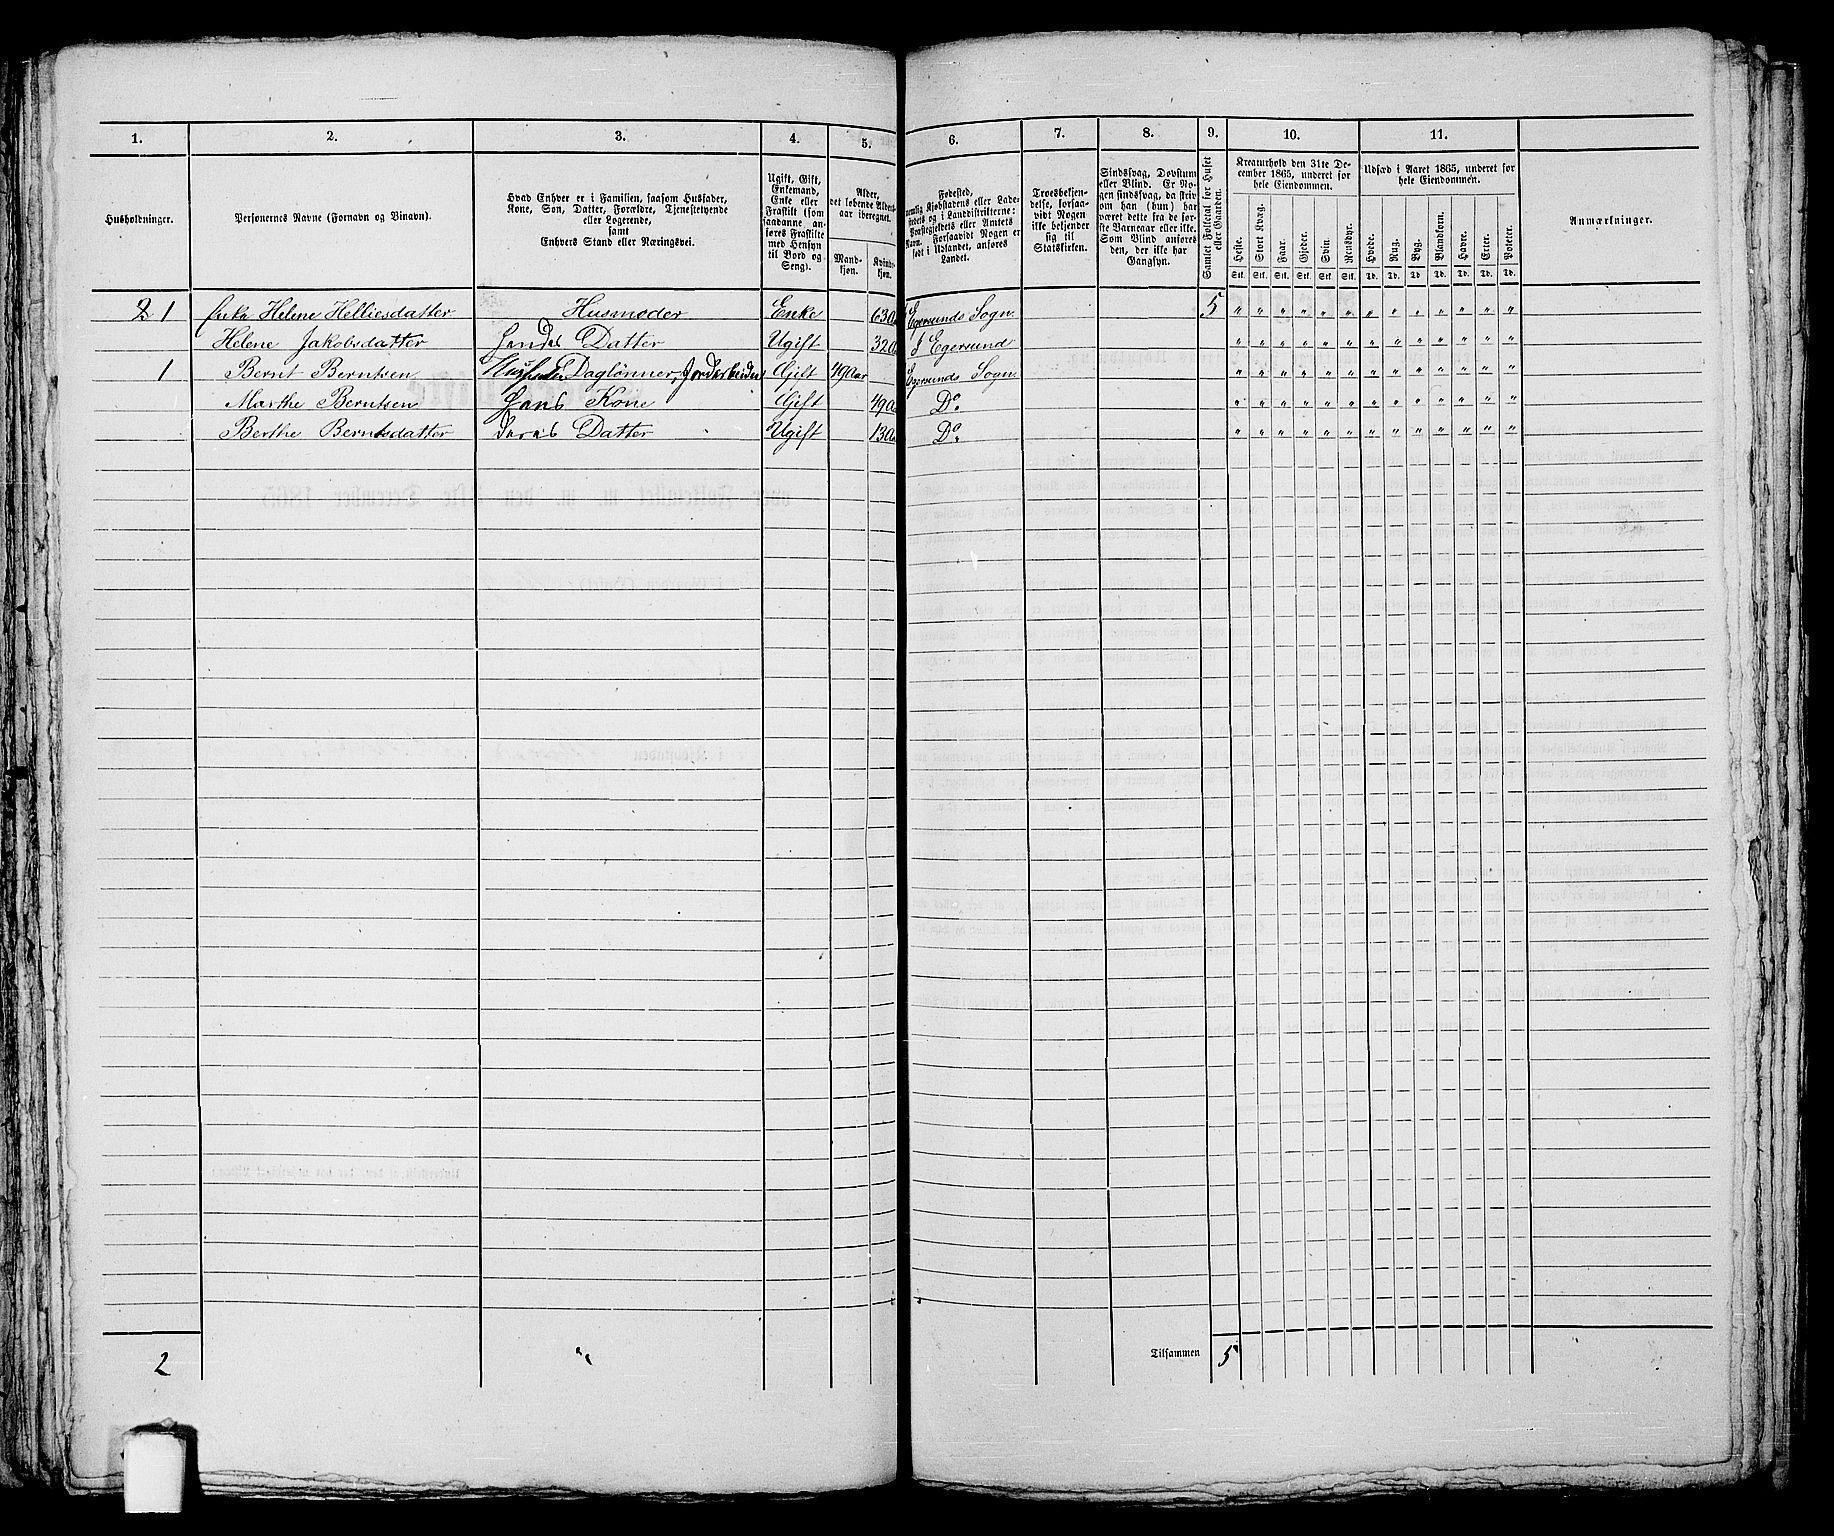 1. 2. 3. 4. 5. 6. 7. 8. 9. 10. 11.
Husholdninger.
Personernes Navne (Fornavn og Tilnavn).
Hvad Enhver er i Familien, saasom Husfader,
Kone, Søn, Datter, Forældre, Tjenestetyende
eller Logerende,
samt
Enhvers Stand eller Næringsvei.
Ugift, Gift,
Enkemand,
Enke eller
Fraskilt (som
saadanne an-
føres Fraskilte
med Hensyn
til Bord og
Seng).
Alder,
det løbende Alders-
aar iberegnet.
Mand-
kjøn.
Kvinde-
kjøn.
Fødested,
nemlig Kjøbstadens eller Lade-
stedets og i Landdistrikterne:
Præstegjeldets eller Amtets
Navn. Forsaavidt Nogen er
født i Udlandet, anføres
Landet.
Troesbekjen-
delse, forsaa-
vidt Nogen
ikke bekjender
sig til
Statskirken.
Sindssvag, Døvstum
eller Blind. Er No-
gen sindssvag, da skriv
om han (hun) har
været dette fra de før-
ste Barneaar eller ikke.
Som Blind anføres
den, der ikke har
Gangsyn.
Samlet Folketal for Huset
eller Gaarden.
Kreaturhold den 31te De-
cember 1865, underet for
hele Eiendommen.
Heste. Stort Kvæg. Faar. Gjeder. Svin. Rensdyr.
Stk. Stk. Stk. Stk. Stk. Stk.
Udsæd i Aaret 1865, underet for
hele Eiendommen.
Hvede. Rug. Byg. Blandkorn. Havre. Erter. Poteter.
Td. Td. Td. Td. Td. Td. Td.
Anmærkninger.
1 Helene Helliesdatter Husmoder Enke 63 Egersunds Sogn 5 " " " " " " " " " " " " "
Helene Jakobsdatter Hendes Datter Ugift 32 Egersund " " " " " " " " " " " " "
1 Bernt Berntsen Husfader Daglønner, Jordarbeider Gift 49 aar Egersunds Sogn " " " " " " " " " " " " "
Marthe Berntsen Hans Kone Gift 49 Do. " " " " " " " " " " " " "
Berthe Berntsdatter Deres Datter Ugift 13 Do. " " " " " " " " " " " " "
2 Tilsammen 5